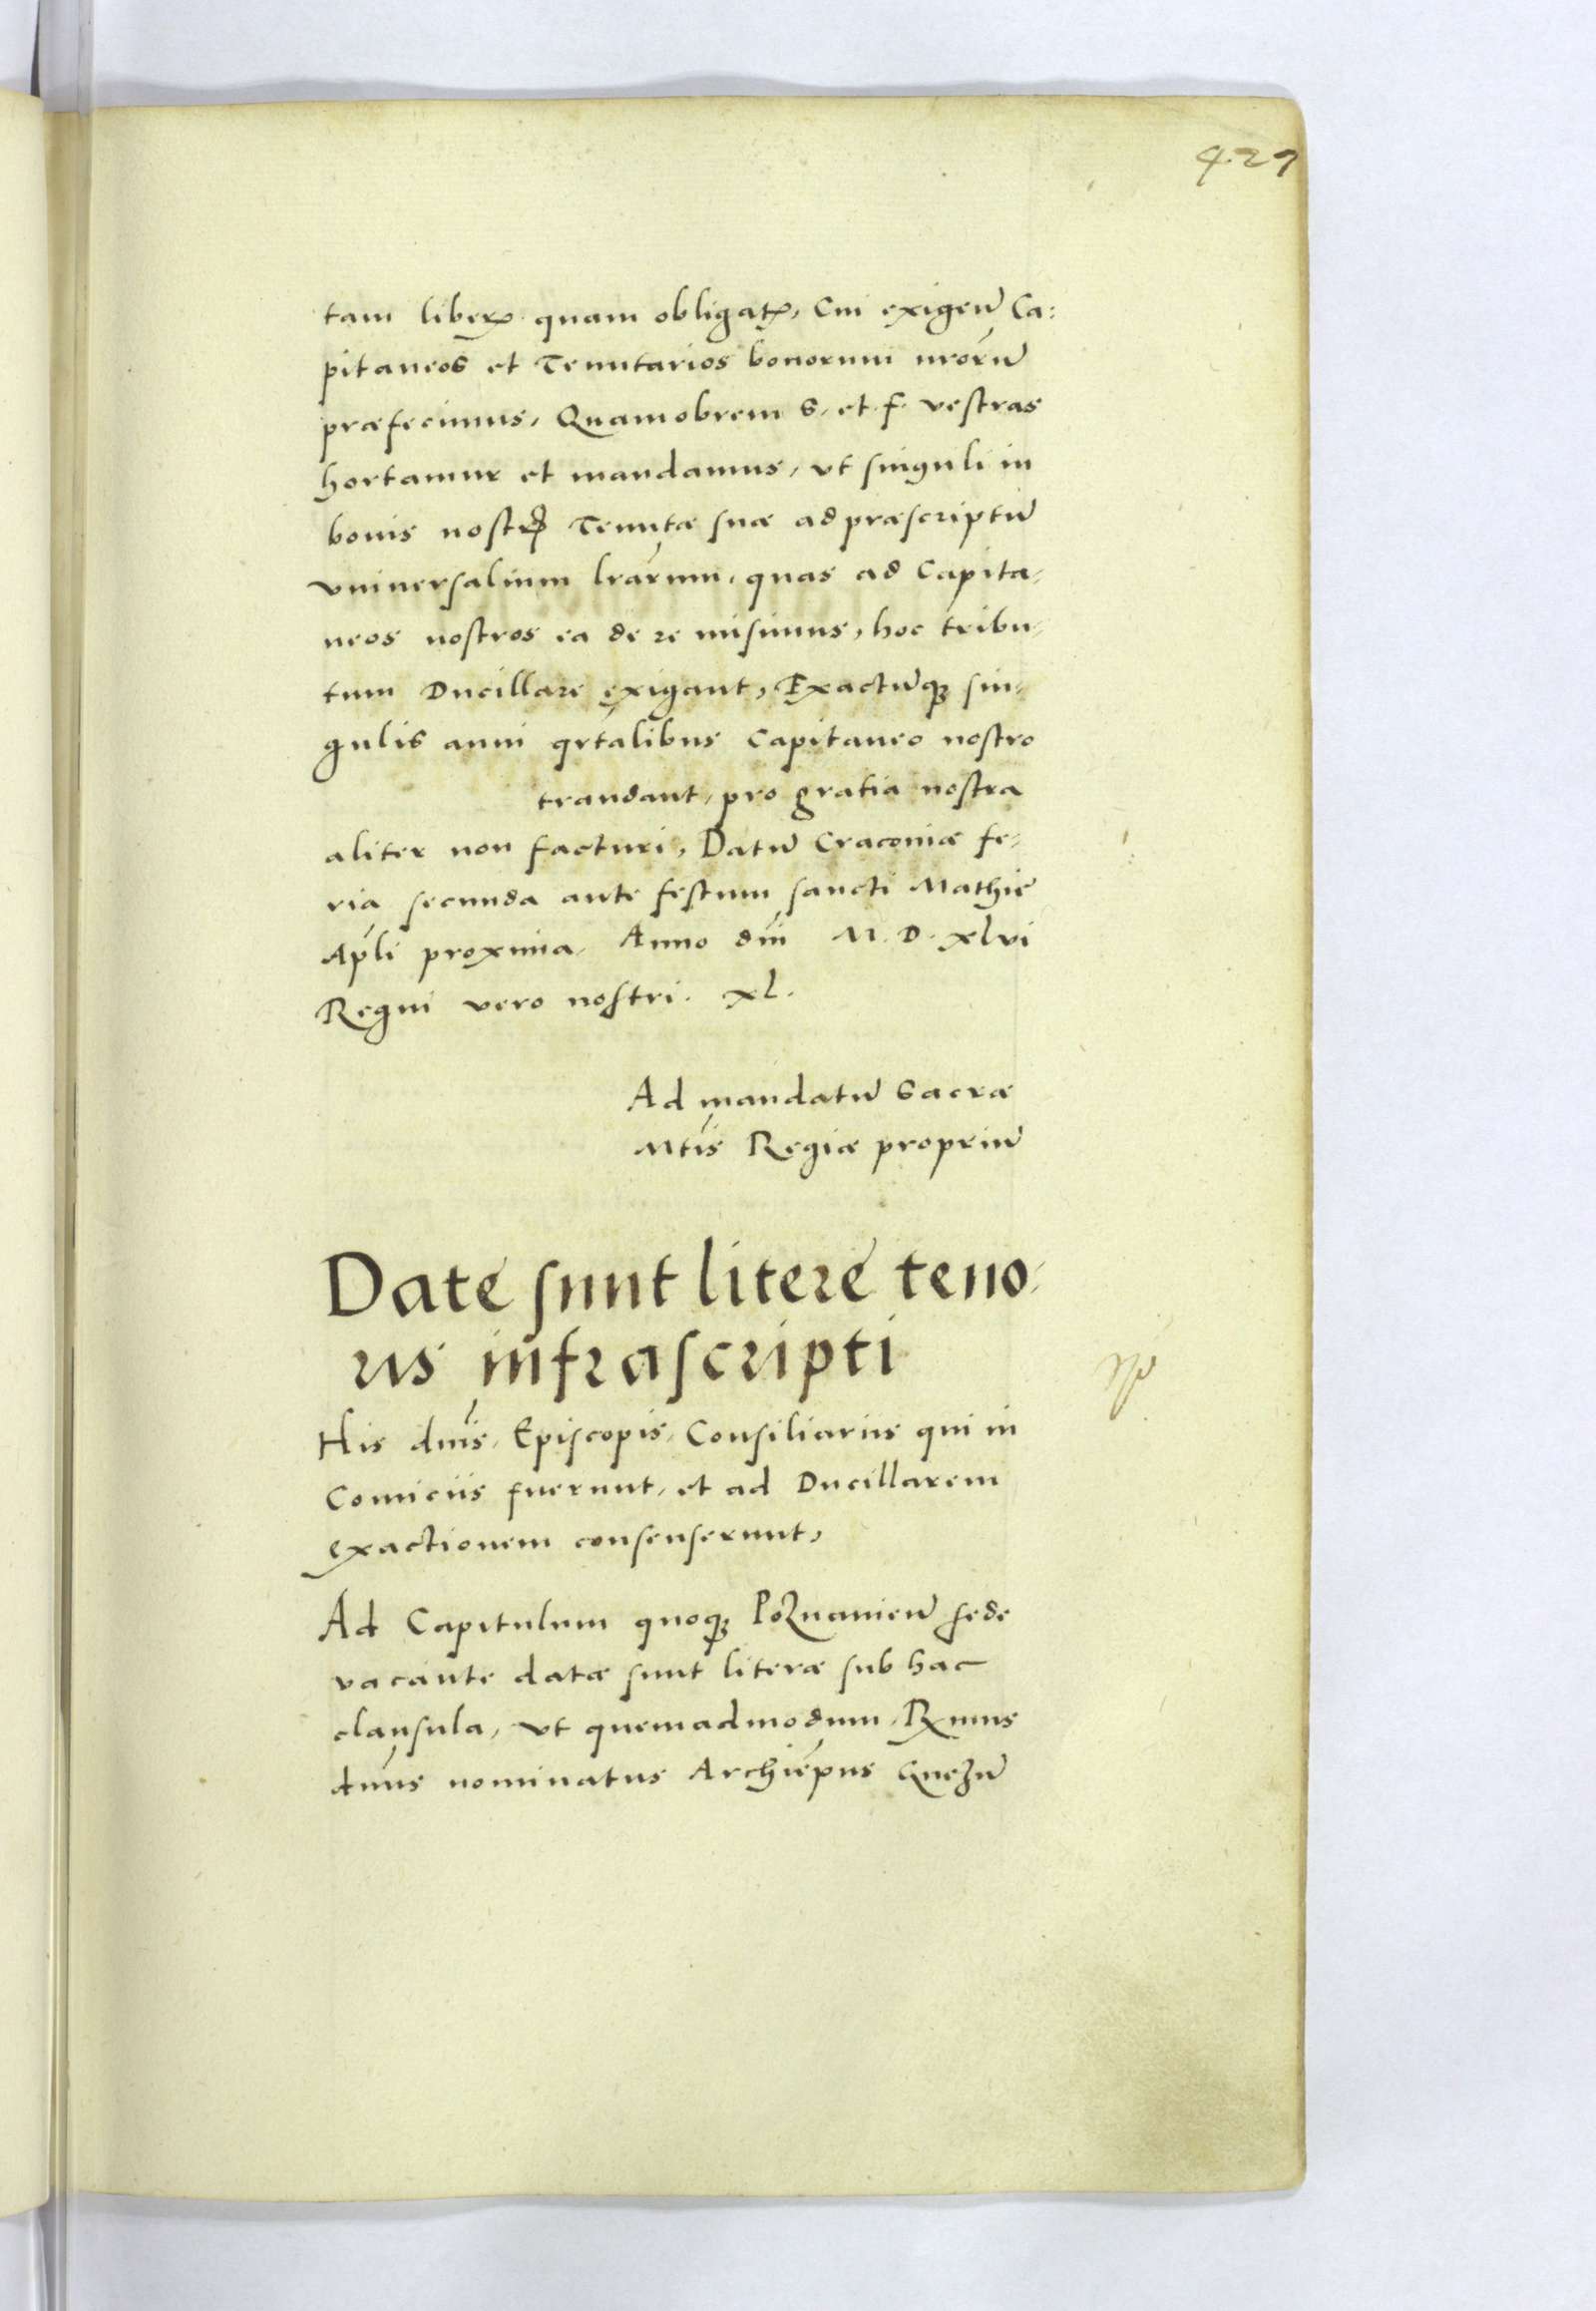 427
tam liberꝝ quam obligatꝝ, Cui exigen̄ Ca:
pitaneos et Tenutarios bonorum nr̄orū
præfecimus, Quamobrem S. et f. vestras
hortamur et mandamus, vt singuli in
bonis nostrꝝ Tenutæ suæ ad præscriptū
vniuersalium lrārum, quas ad Capita-
neos nostros ea de re misimus, hoc tribu-
tum Ducillare exigant, Exactūqꝫ sin-
gulis anni qrtalibus Capitaneo nostro
tradant, pro gratia nostra
aliter non facturi, Datū Cracouiæ fe-
ria secunda ante festum sancti Mathię
Apli proxima, Anno dn̄i M. D. xlvi
Regni vero nostri. xl.
Ad mandatū Sacræ
Mtis Regiæ propriū
Datę sunt literę teno-
ris infrascripti
His dnis, Episcopis, Consiliariis qui in
Comiciis fuerunt, et ad Ducillarem
exactionem consenserunt,
Ad Capitulum quoqꝫ Poznanien̄ sede
vacante datæ sunt literæ sub hac
clausula, vt quemadmodum, Rx̄mus
dn̄us nominatus Archiepūs Gnezn̄